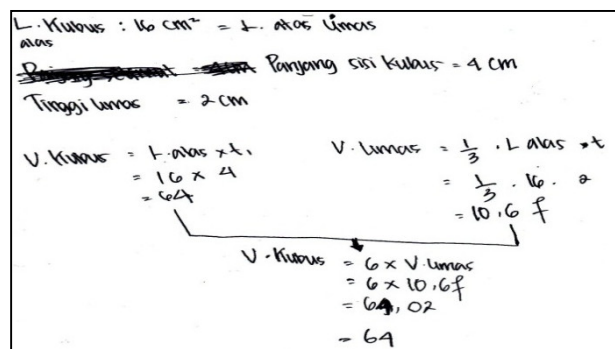 L. Kubus : 16 cm² = L. alas Limas
alas
Panjang sisi Kubus = 4 cm
Tinggi Limas = 2 cm
V. Kubus = L. alas x t.
= 16 x 4
= 64
V. Limas = 1/3 . L alas . t
= 1/3 . 16 . 2
= 10,67
V. Kubus = 6 x V. Limas
= 6 x 10,67
= 64,02
= 64